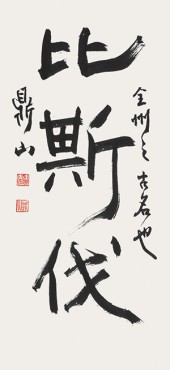 比斯伐
全州之古名也
鼎山